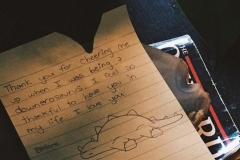 Thank you for cheering me
up when I was being a
downerosaurus. I feel so
thankful to have you in
my life. I love you.